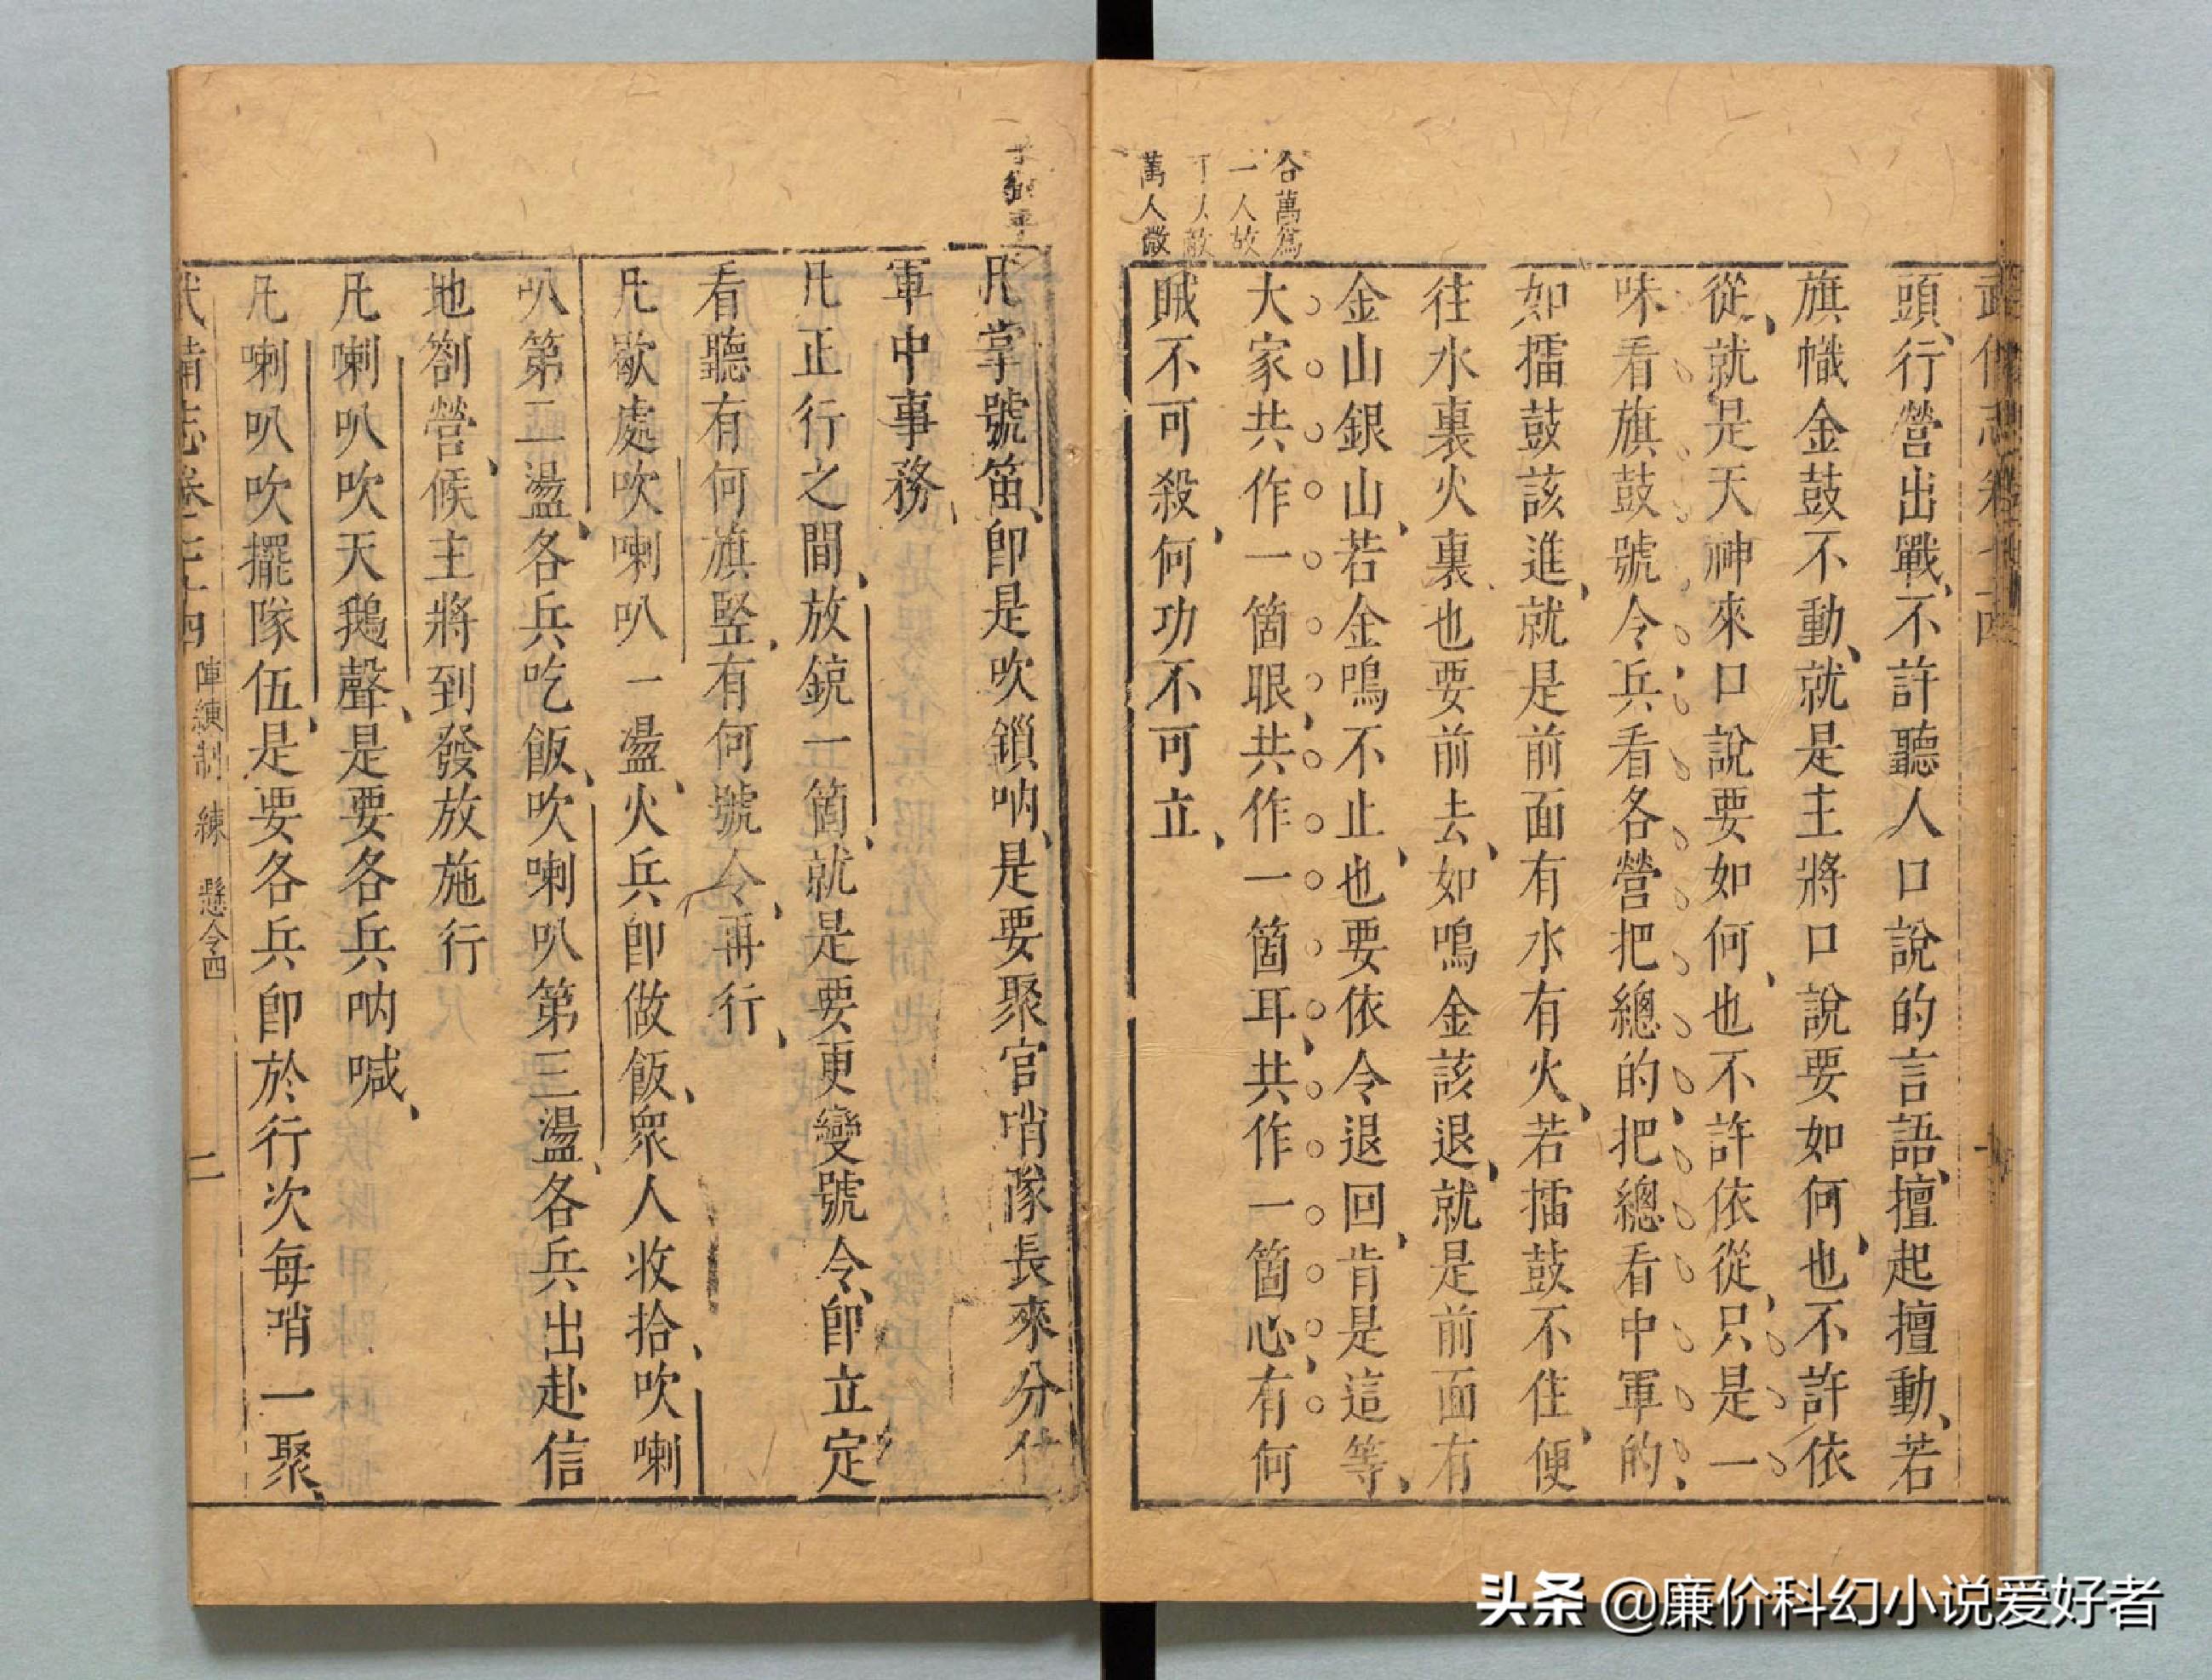 合萬爲
一人故
人敵
萬人微
頭、行營出戰、不許聽人口說的言語、擅起擅動、若
旗幟金鼓不動、就是主將口說要如何、也不許依
從、就是天神來口說要如何、也不許依從、只是一
味看旗鼓號令、兵看各營把總的、把總看中軍的、
如擂鼓該進、就是前面有水有火、若擂鼓不住、便
往水裏火裏、也要前去、如鳴金該退、就是前面有
金山銀山、若金鳴不止、也要依令退回、肯是這等、
大家共作一箇眼、共作一箇耳、共作一箇心、有何
賊不可殺、何功不可立、
凢掌號笛、卽是吹鎖吶、是要聚官哨隊長來分付
軍中事務、
凢正行之間、放銃一箇、就是要更變號令、卽立定
看聽有何旗竪、有何號令、再行、
凢歇處吹喇叭一盪、火兵卽做飯、衆人收拾、吹喇
叭第二盪、各兵吃飯、吹喇叭第三盪、各兵出赴信
地劄營、候主將到發放施行
凢喇叭吹天鵝聲、是要各兵吶喊、
凢喇叭吹擺隊伍、是要各兵卽於行次每哨一聚、
陣練制 練 懸令四
二
头条 @廉价科幻小说爱好者